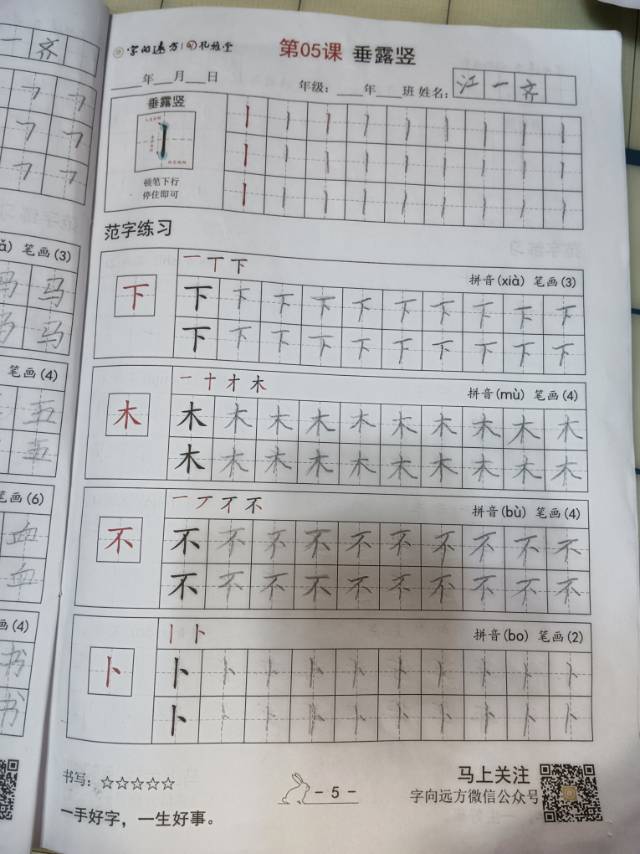 一 齐
笔画(3)
马 马
马 马
笔画(4)
五
五
笔画(6)
血
血
画(4)
书
书
字向远方 孔祖堂
第05课 垂露竖
年 月 日
年级: 年 班 姓名: 江 一 齐
垂露竖
顿笔下行
停住即可
范字练习
一 丅 下
拼音(xià) 笔画(3)
下
下 下 下 下 下 下 下 下 下 下
下 下 下 下 下 下 下 下 下 下
一 十 才 木
拼音(mù) 笔画(4)
木
木 木 木 木 木 木 木 木 木 木
木 木 木 木 木 木 木 木 木 木
一 丆 不 不
拼音(bù) 笔画(4)
不
不 不 不 不 不 不 不 不 不 不
不 不 不 不 不 不 不 不 不 不
丨 卜
拼音(bo) 笔画(2)
卜
卜 卜 卜 卜 卜 卜 卜 卜 卜 卜
卜 卜 卜 卜 卜 卜 卜 卜 卜 卜
书写: ☆☆☆☆☆
一手好字，一生好事。
- 5 -
马上关注
字向远方微信公众号